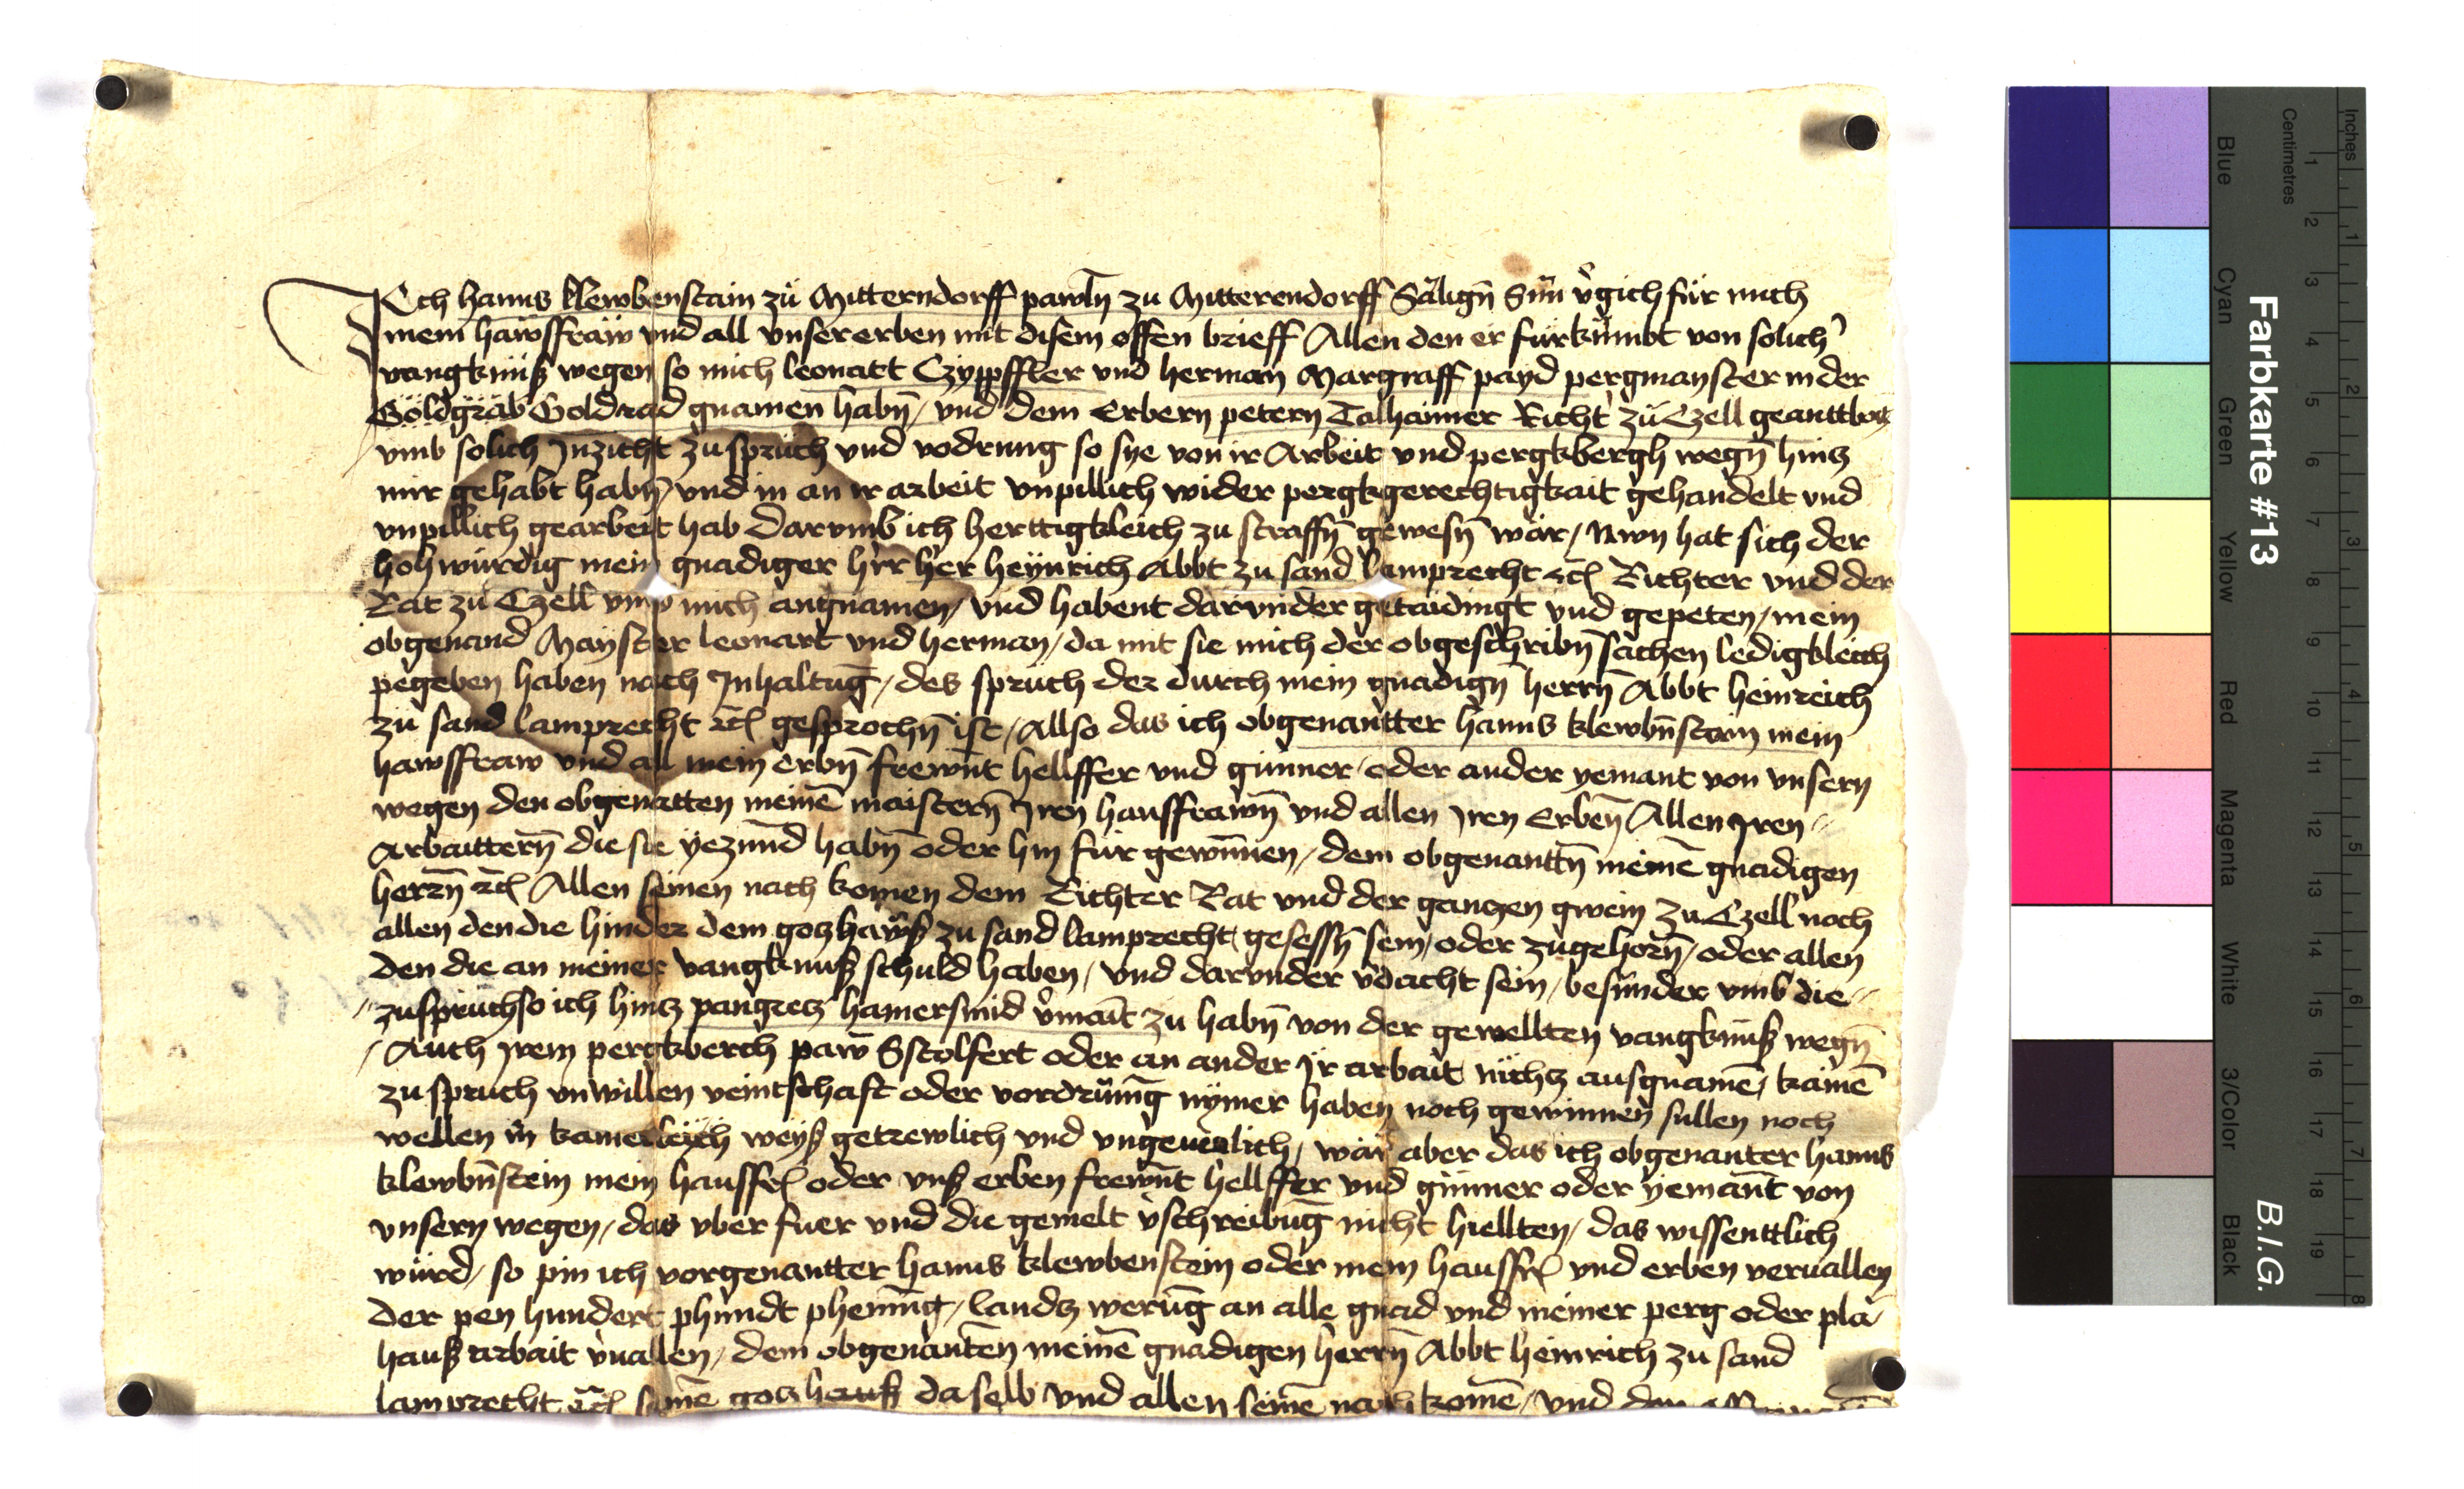 Ich hanns klewbenstain zu Mitterndorff pawln zu Mitterendorff Säligñ Sun v̉gich für mich
mein hawsfraw vnd all vnser erben mit disem offen brieff Allen den er fürkümbt von solich̉
vangknüß wegen so mich leonatt Czypffler vnd herman Margraff payd pergmanster in der
Goldgrab Goldrad gnamen habñ / vnd dem Erbern petern Talhaimer Richt̉ zu Czell geanttbort
vmb solich Inzicht zuspruch vnd vodrung so sye von ir Arbeit vnd pergkbergh wegñ hincz
mir gehabt habñ vnd in an ir arbeit vnpillich wider pergkgerechtigkait gehandelt vnd
vnpillich gearbeit hab Darvmb ich herttigkleich zu straffñ gewesñ wär / Nwn hat sich der
hohwürdig mein gnadiger h̉rr her heynrich Abbt zu sand lamprecht etc Richter vnd der
Rat zu Czell vmb mich angnamen / vnd habent darvnder getaidingt vnd gepeten / mein
obgenand Mayster leonart vnd herman / da mit sie mich der obgeschribñ sachen ledigkleich
pegeben haben nach Inhaltūg / des spruch der durch mein gnadigñ herrñ Abbt heinreich
zu sand lamprecht etc gesprochñ ist / Allso das ich obgenantter hanns klewbñstain mein
hawsfraw vnd all mein erbñ frewnt hellffer vnd günner / oder ander yemant von vnsern
wegen den obgenatten meinē maisterñ Iren hausfrawñ vnd allen Iren Erbeñ Allen Iren
Arbaitterñ die sie yezund habñ oder hin für gewinnen / dem obgenanttñ meinē gnadigen
herrñ etc Allen seinen nach komen dem Richter Rat vnd der ganczen gmein zu Czell noch
allen den die hinder dem goczhawß zu sand lamprecht gesessñ sein / oder zugehorñ / oder allen
den die an meiner vangknuß schuld haben / vnd darvnder v̉dacht sein / besunder vmb die
zuspruch so ich hincz pangrecz hamersmid v̉maīt zu habñ von der gewellten vangknüß wegñ
Auch Irem pergkberch paw Sstolfert oder an ander Ir arbait nichcz ausgnamē / kainē
zu spruch vnwillen veintschaft oder vordrung nymer haben noch gewinnen sullen noch
wellen in kainerleych weyß getrewlich vnd vngeuerlich / wär aber das ich obgenanter hanns
klewbñstein mein hausfr oder vnß erben frewnt hellffer vnd günner oder yemant von
vnsern wegen / das vber fuer vnd die gemelt v̉schreibūg nicht hiellten / das wissenttlich
würd / so pin ich vorgenantter hanns klewbenstein oder mein hausfr vnd erben veruallen
der pen hundert phundt phening / landcz werūg an alle gnad vnd meiner perg oder plä
hauß arbait v̉uallen / dem obgenanten meinē gnadigen herrñ Abbt heinrich zu sand
lamprecht etc seinē goczhauß daselb vnd allen seinē nach komē / vnd den
Farbkarte #13
B.I.G.
Inches
Centimetres
Blue
Cyan
Green
Yellow
Red
Magenta
White
3/Color
Black
1 2 3 4 5 6 7 8 9 10 11 12 13 14 15 16 17 18 19
1 2 3 4 5 6 7 8